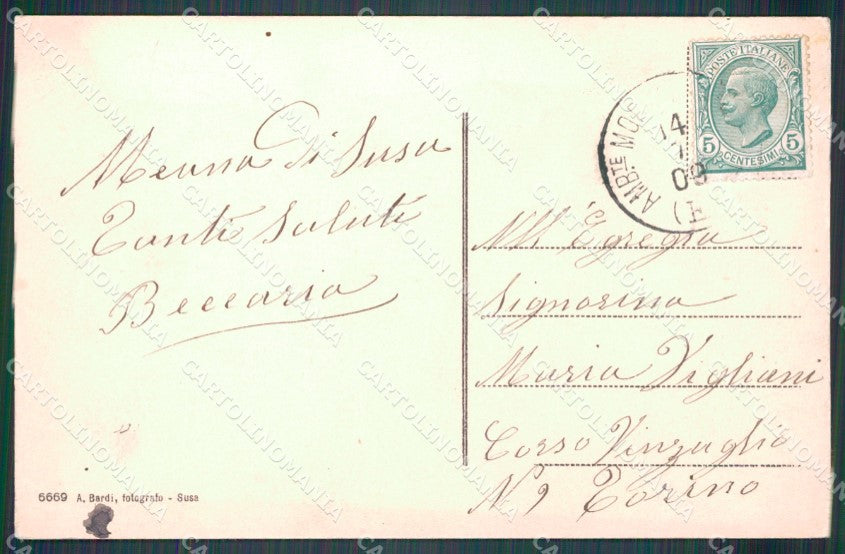 Meana Di Susa
Tanti Saluti
Beccaria
POSTE ITALIANE
5 5
CENTESIMI
AMB.TE MO
14
09
All'Egregia
Signorina
Maria Vigliani
Corso Vinzaglio
N 9 Torino
6669 A. Bardi, fotografo - Susa
CARTOLINOMANIA